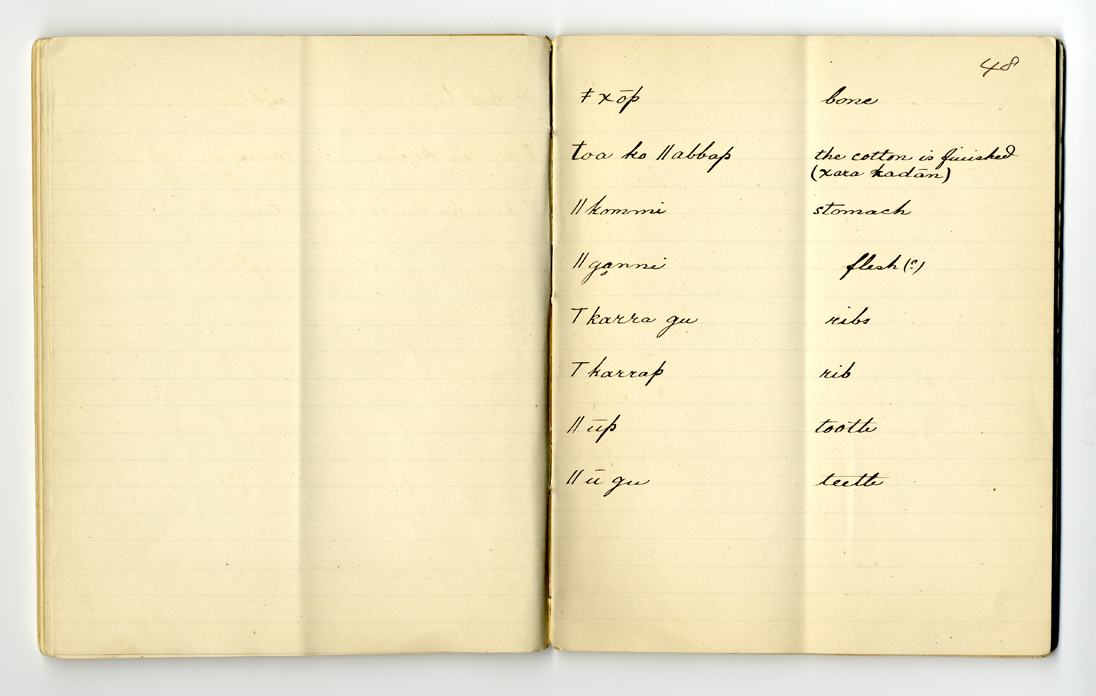 48
ǂ xōp bone
toa ko ǁabbap the cotton is finished
(xara kadān)
ǁkommi stomach
ǁgḁnni flesh (?)
Tkarra gu ribs
Tkarrap rib
ǁūp tooth
ǁū gu teeth